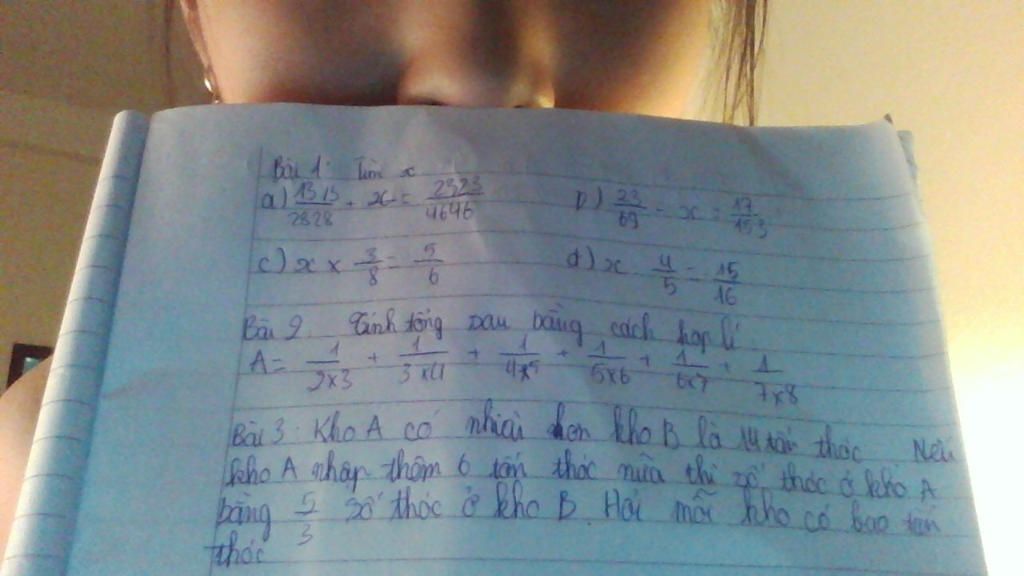 Bài 1: Tìm x
a) 1313/2828 + x = 2323/4646 b) 23/69 - x = 17/153
c) x × 3/8 = 5/6 d) x 4/5 = 15/16
Bài 2. Tính tổng sau bằng cách hợp lí
A = 1/2×3 + 1/3×4 + 1/4×5 + 1/5×6 + 1/6×7 + 1/7×8
Bài 3: Kho A có nhiều hơn kho B là 14 tấn thóc Nếu
kho A nhập thêm 6 tấn thóc nữa thì số thóc ở kho A
bằng 5/3 số thóc ở kho B. Hỏi mỗi kho có bao tấn
thóc